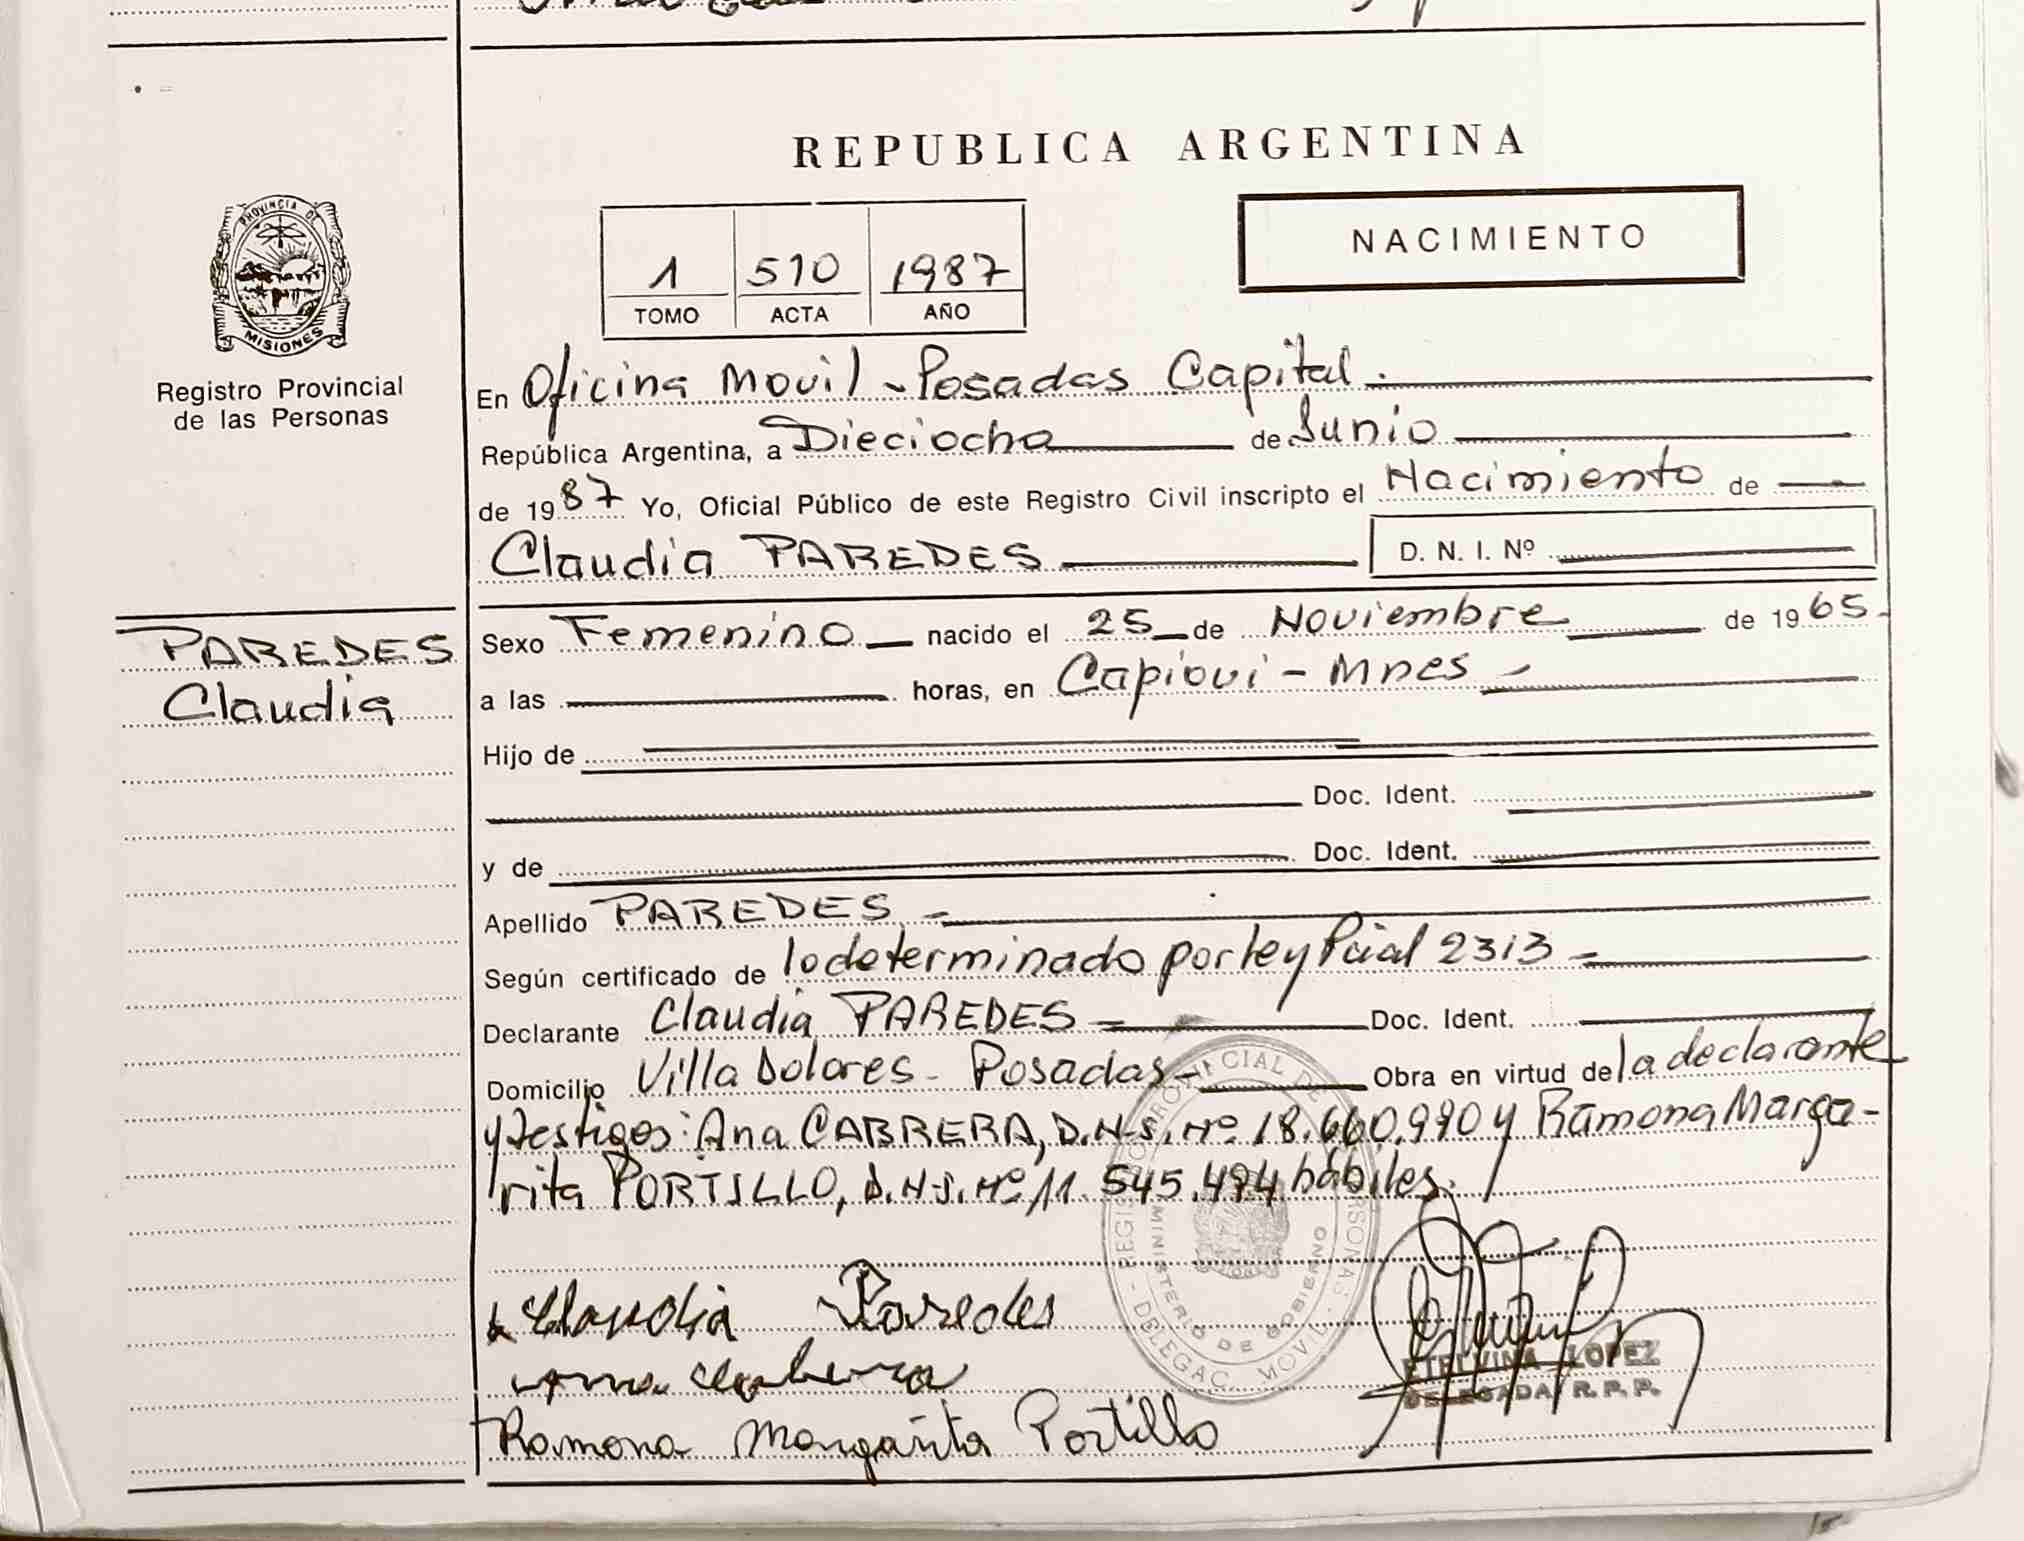 REPUBLICA ARGENTINA
NACIMIENTO
1 510 1987
TOMO ACTA AÑO
PROVINCIA DE
MISIONES
Registro Provincial
de las Personas
En Oficina Movil - Posadas Capital.
República Argentina, a Dieciocho de Junio
de 1987 Yo, Oficial Público de este Registro Civil inscripto el Nacimiento de
Claudia PAREDES D. N. I. Nº
PAREDES
Claudia
Sexo Femenino nacido el 25 de Noviembre de 1965-
a las horas, en Capiovi - Mnes -
Hijo de
Doc. Ident.
y de Doc. Ident.
Apellido PAREDES -
Según certificado de lo determinado por ley Pcial 2313 -
Declarante Claudia PAREDES - Doc. Ident.
Domicilio Villa Dolores - Posadas - Obra en virtud de la declarante
y testigos: Ana CABRERA, D.N.I. Nº 18.660.990 y Ramona Marga-
rita PORTILLO, D.N.I. Nº 11.545.494 hábiles.
REGISTRO PROVINCIAL DE LAS PERSONAS - DELEGAC. MOVIL -
MINISTERIO DE GOBIERNO
Claudia Paredes
Ana Cabrera
ETELVINA LOPEZ
DELEGADA R. P. P.
Ramona Margarita Portillo